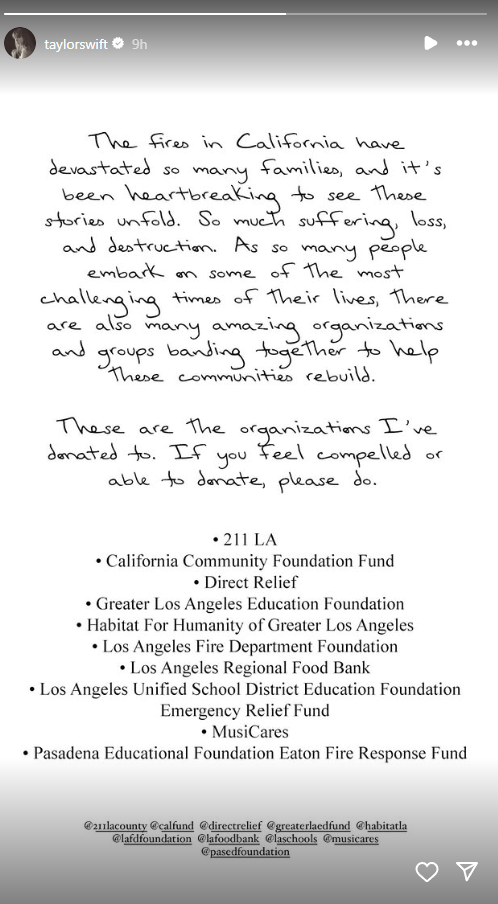 taylorswift 9h
The fires in California have
devastated so many families, and it's
been heartbreaking to see these
stories unfold. So much suffering, loss,
and destruction. As so many people
embark on some of the most
challenging times of their lives, there
are also many amazing organizations
and groups banding together to help
these communities rebuild.
These are the organizations I've
donated to. If you feel compelled or
able to donate, please do.
• 211 LA
• California Community Foundation Fund
• Direct Relief
• Greater Los Angeles Education Foundation
• Habitat For Humanity of Greater Los Angeles
• Los Angeles Fire Department Foundation
• Los Angeles Regional Food Bank
• Los Angeles Unified School District Education Foundation
Emergency Relief Fund
• MusiCares
• Pasadena Educational Foundation Eaton Fire Response Fund
@211lacounty @calfund @directrelief @greaterlaedfund @habitatla
@lafdfoundation @lafoodbank @laschools @musicares
@pasedfoundation